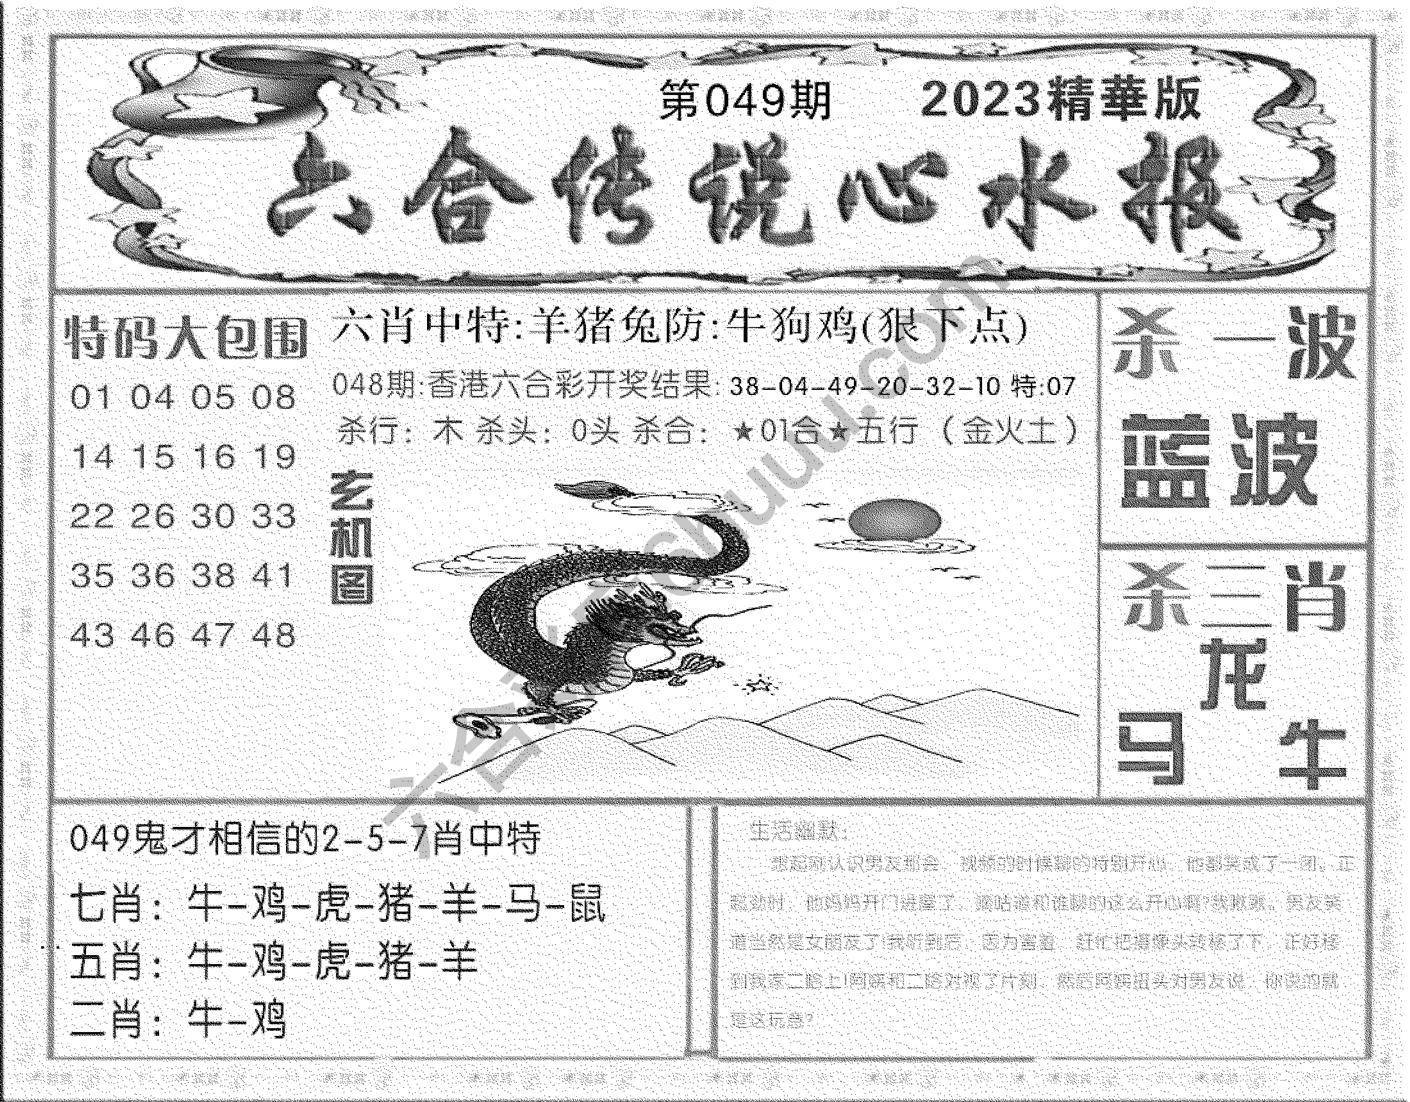 第049期 2023精華版
六合传说心水报
特码大包围
01 04 05 08
14 15 16 19
22 26 30 33
35 36 38 41
43 46 47 48
六肖中特:羊猪兔防:牛狗鸡(狠下点)
048期:香港六合彩开奖结果: 38-04-49-20-32-10 特:07
杀行: 木 杀头: 0头 杀合: ★01合★五行 (金火土)
玄机图
杀一波
蓝波
杀三肖
龙
马 牛
049鬼才相信的2-5-7肖中特
七肖: 牛-鸡-虎-猪-羊-马-鼠
五肖: 牛-鸡-虎-猪-羊
二肖: 牛-鸡
生活幽默:
想起刚认识男友那会, 视频的时候聊的特别开心, 他都笑成了一团。正
起劲时, 他妈妈开门进屋了, 嘀咕道和谁聊的这么开心啊?我嗽嗽。男友笑
道当然是女朋友了!我听到后, 因为害羞, 赶忙把摄像头转移了下, 正好移
到我家二哈上!阿姨和二哈对视了片刻, 然后阿姨扭头对男友说: 你说的就
是这玩意?